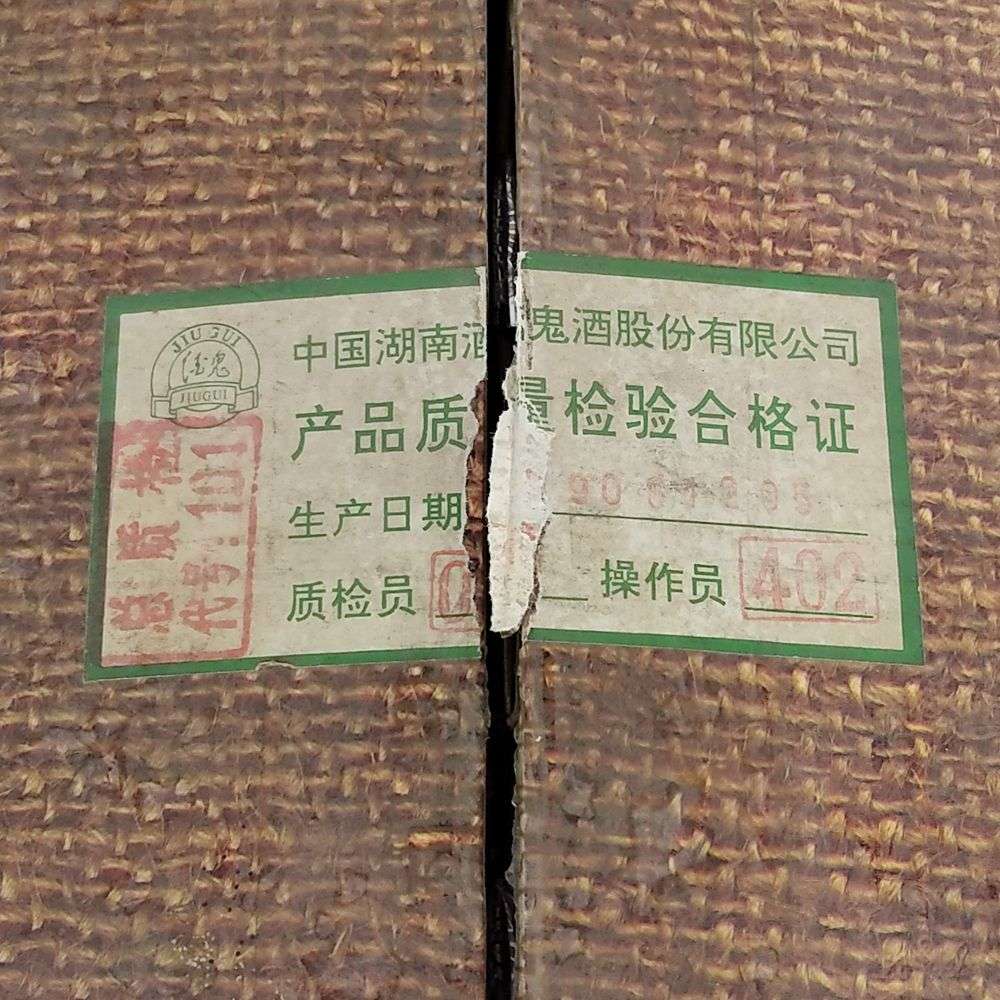 JIU GUI
酒鬼
JIUGUI
中国湖南酒鬼酒股份有限公司
产品质量检验合格证
生产日期
质检员
操作员 402
总质检
代号:101